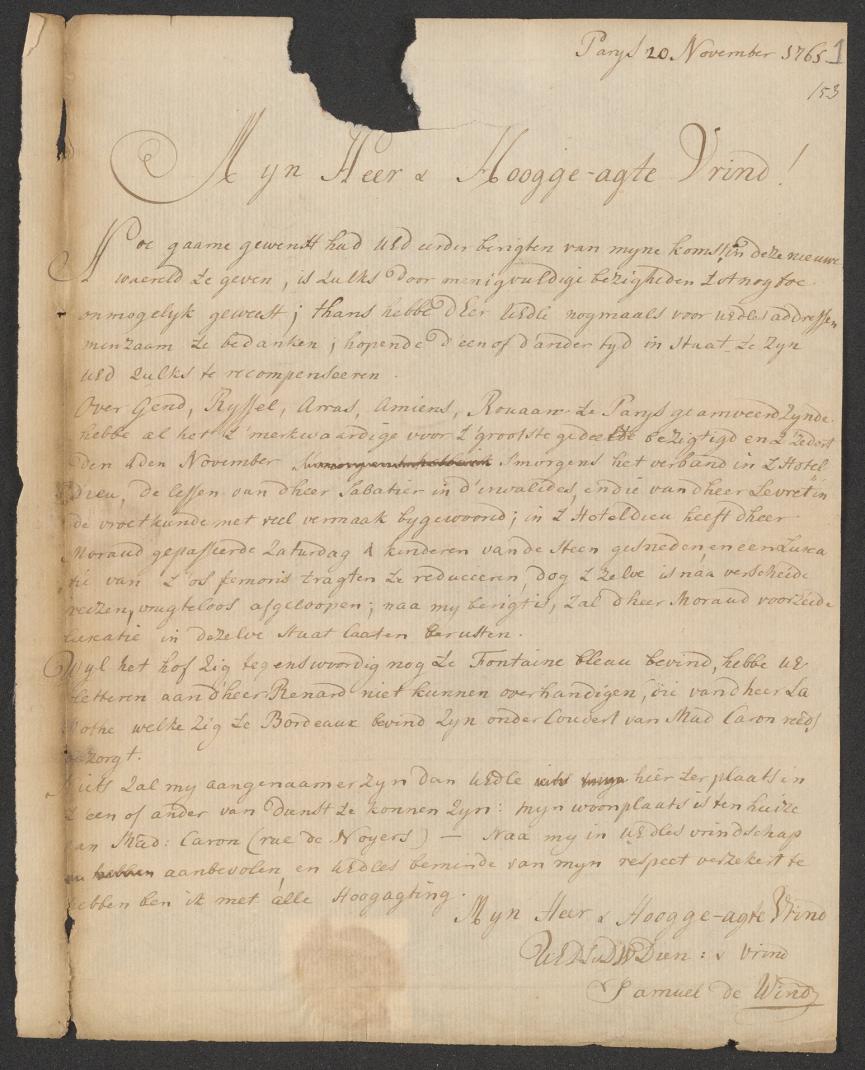 Parys 20 November 1765 1
153
Myn Heer & Hoogge-agte Vrind!
Hoe gaarne gewenst had UEd eerder berigten van myne komst in deze nieuwe
waereld te geven, is zulks door menigvuldige bezigheden tot nog toe
onmogelyk geweest; thans hebbe d'Eer UEdle nogmaals voor uEdles addressen
minzaam te bedanken; hopende d'een of d'ander tyd in staat te zyn
UEd zulks te recompenseeren.
Over Gend, Ryssel, Arras, Amiens, Rouaan te Parys gearriveerd zynde
hebbe al het 't merkwaardige voor 't grootste gedeelte bezigtigd en 't zedert
den den November Smorgens het verband in 't Hotel
Dieu, de lessen van dheer Sabatier in d'invalides, en die van dheer Levret in
de vroetkunde met veel vermaak bygewoond; in 't Hotel dieu heeft dheer
Moraud gepasseerde Zaturdag 4 kinderen van de Steen gesneden, en een Luxa
tie van 't os femoris tragten te reduceeren, dog 't zelve is náa verscheide
reizen vrugteloos afgeloopen; naa my berigt is, zal dheer Moraud voorzeide
luxatie in dezelve staat laaten berusten.
Wyl het hof zig tegenswoordig nog te Fontaine bleau bevind, hebbe UE
letteren aan d'heer Renard niet kunnen overhandigen, die van dheer La
Mothe welke zig te Bordeaux bevind zyn onder Couvert van Mad Caron reeds
bezorgt.
Niets zal my aangenaamer zyn dan UEdle hier ter plaats in
't een of ander van dienst te konnen zyn: myn woonplaats is ten huize
van Mad: Caron (rue de Noyers) — Naa my in UEdles vrindschap
aanbevolen, en UEdles beminde van myn respect verzekert te
hebben ben ik met alle Hoogagting.
Myn Heer & Hoogge-agte Vrind
UEds DW Dien: & Vrind
Samuel de Wind